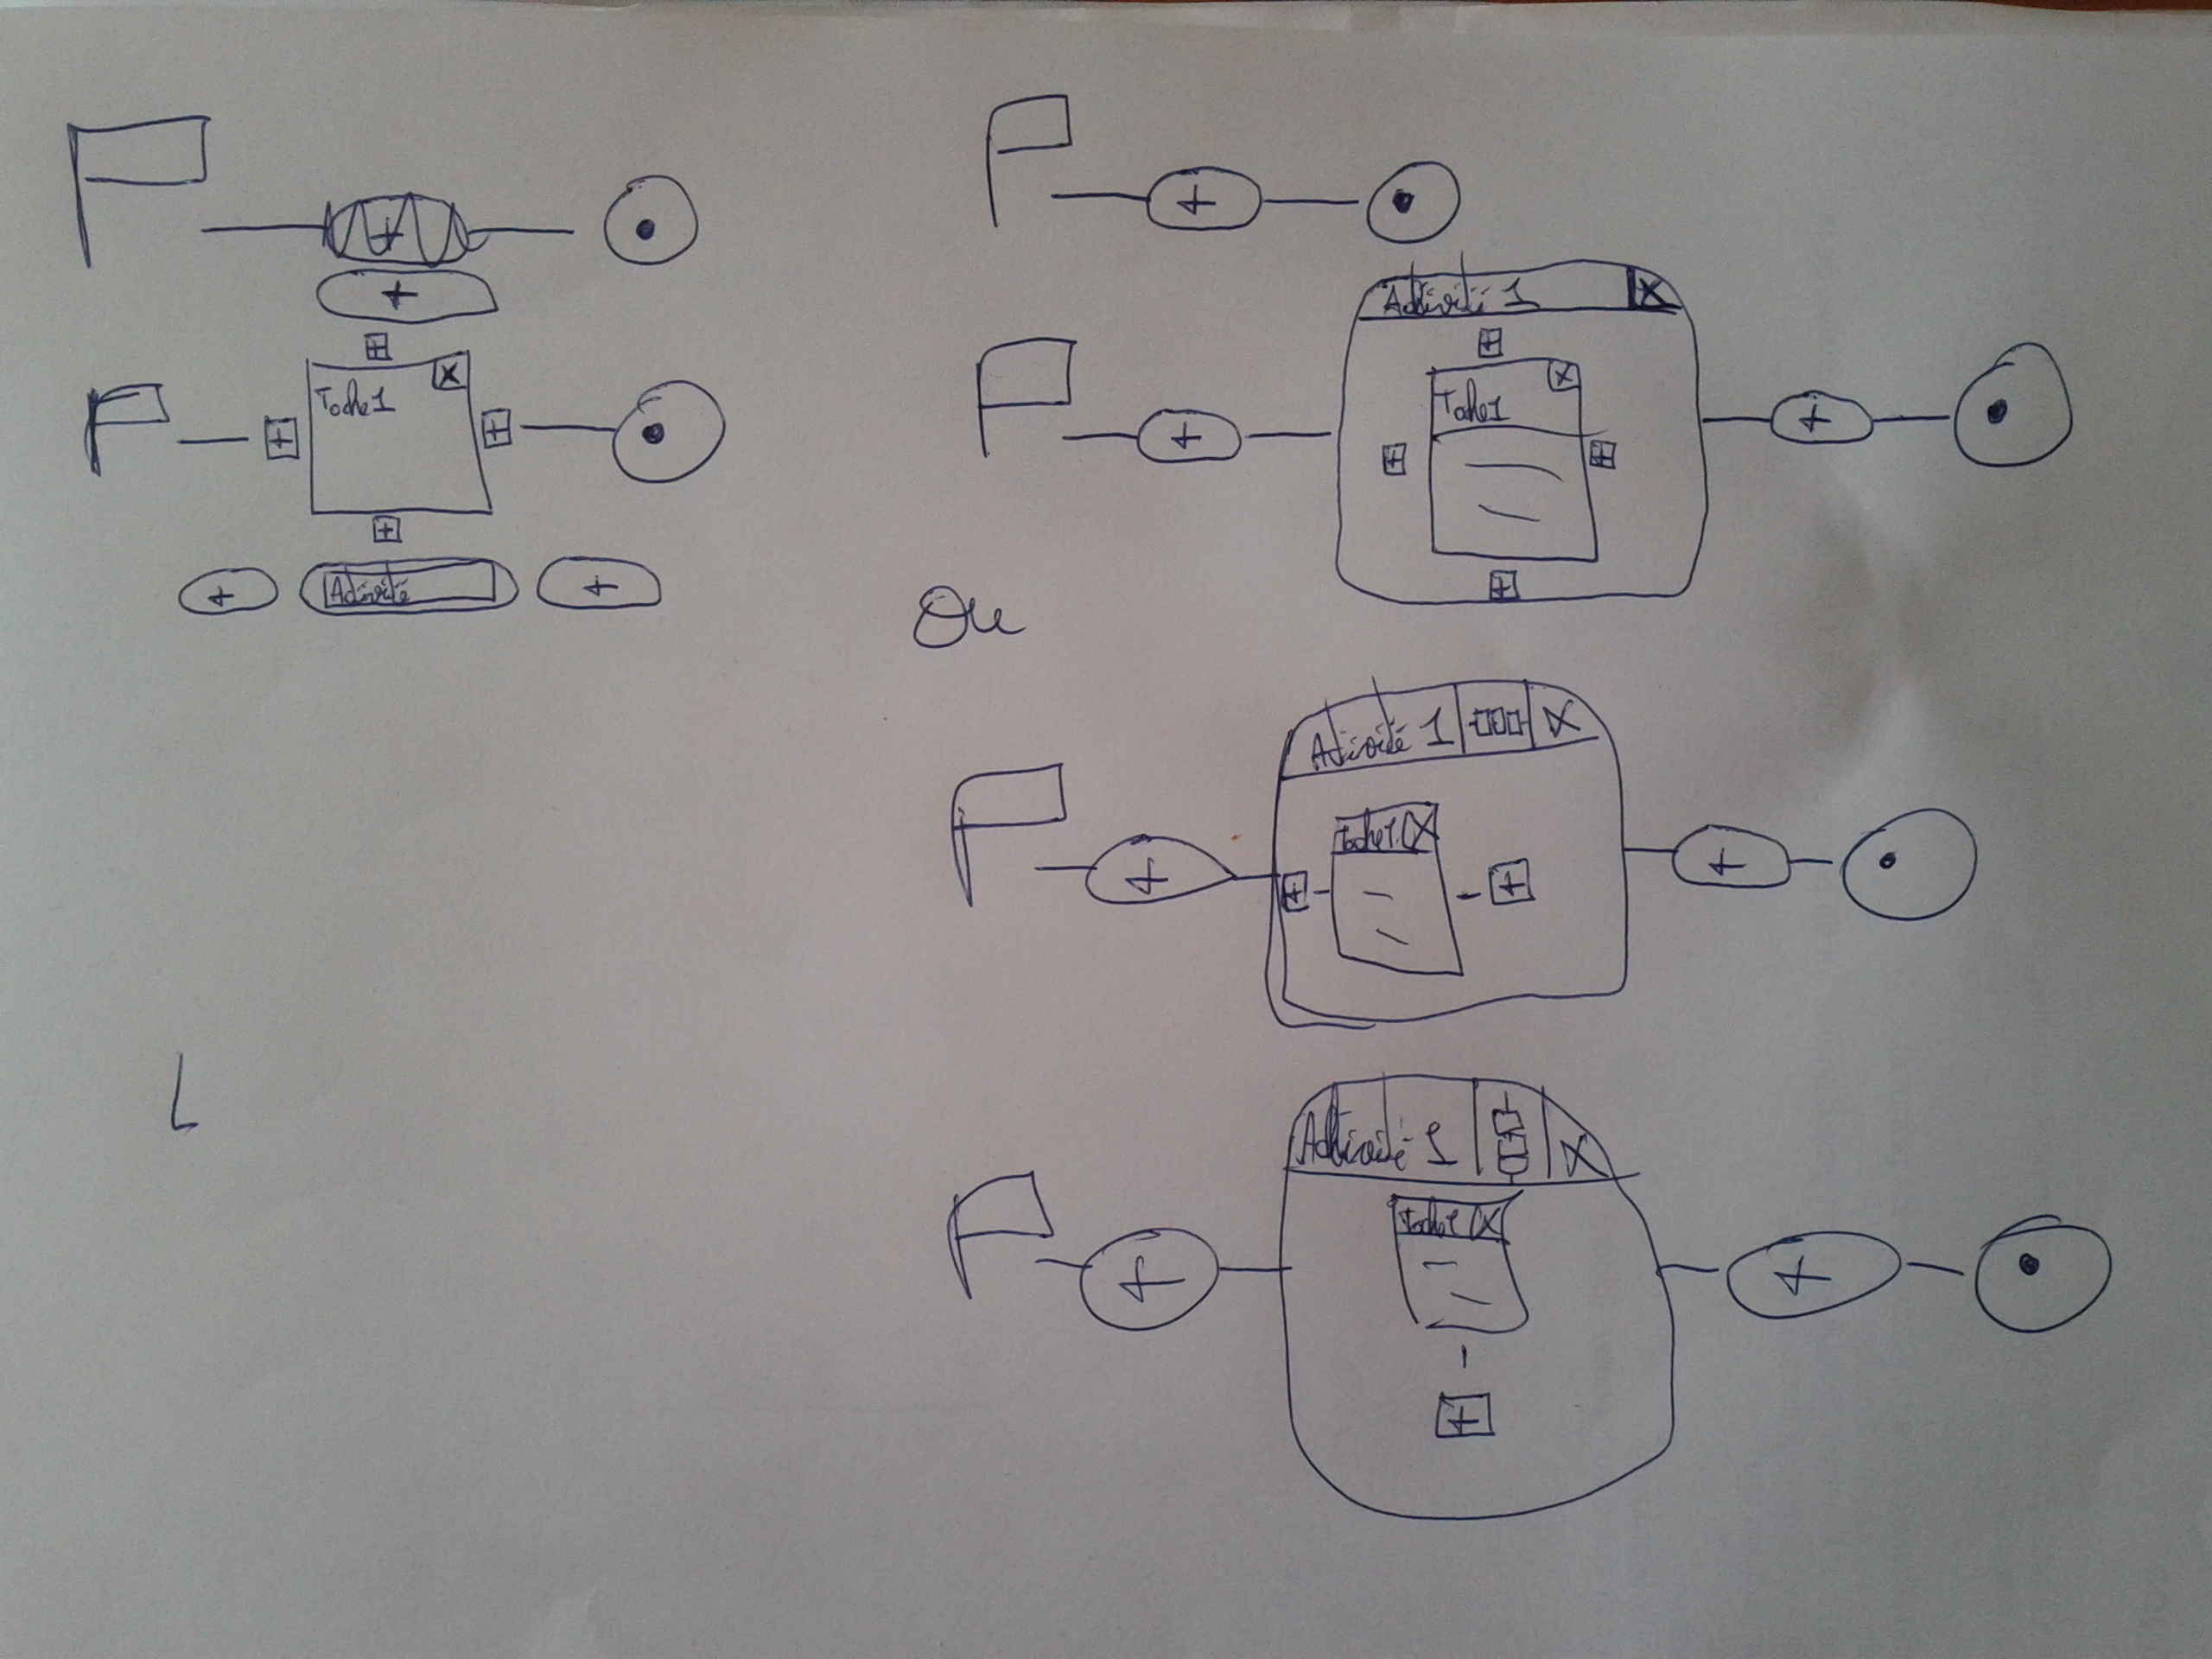 +
+
+
Tache 1 X
+ +
+
+ Activité +
+
Activité 1 X
+
Tache 1 X
+ +
+ +
+
Ou
Activité 1 X
Tache 1 X
+ +
+ +
Activité 1 X
Tache 1 X
+ +
+